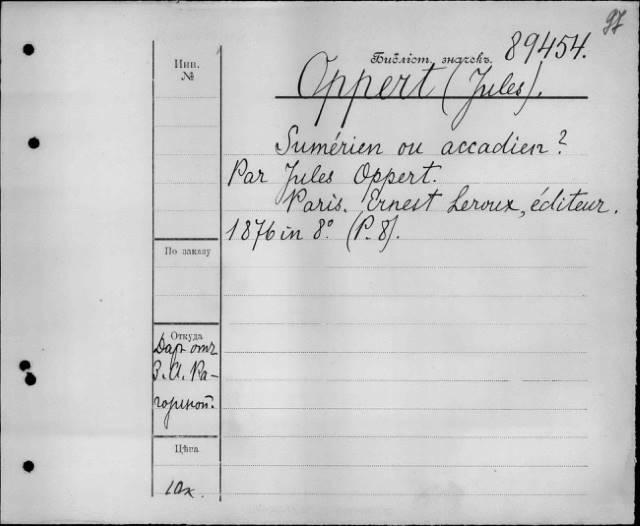 97
Библіот. значекъ. 89454.
Инв.
№
Oppert (Jules).
Sumérien ou accadien?
Par Jules Oppert.
Paris. Ernest Leroux, éditeur.
1876 in 8º. (P. 8).
По заказу
Откуда
Даръ отъ
З. А. Ра-
гозиной.
Цѣна